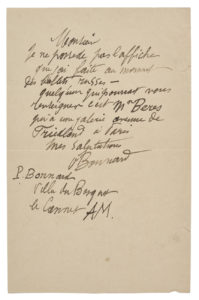 Monsieur
Je ne possède pas l'affiche
que j'ai faite au moment
des ballets russes —
quelqu'un qui pourrait vous
renseigner c'est Mr Berès
qui a une galerie avenue de
Friedland à Paris
Mes salutations
P Bonnard
P. Bonnard
Villa du Bosquet
Le Cannet A.M.